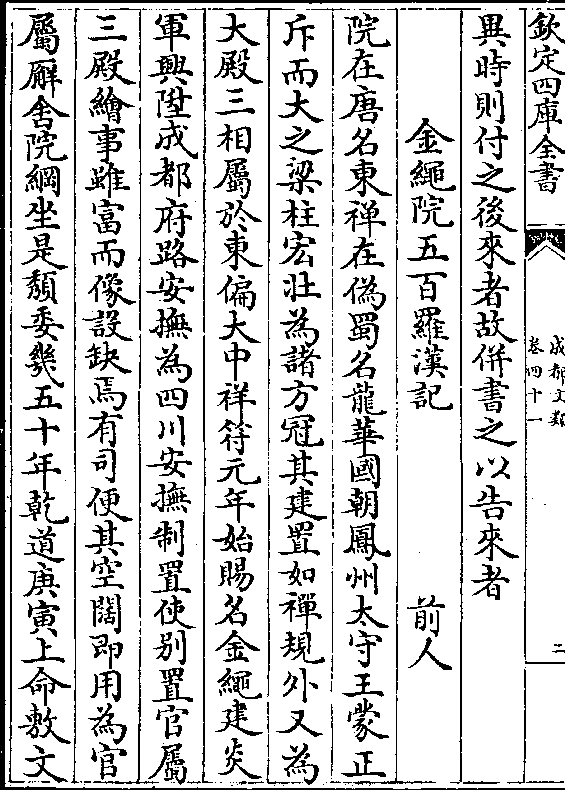 欽定四庫全書
成都文類
卷四十一
二
異時則付之後來者故併書之以告來者
金繩院五百羅漢記
前人
院在唐名東禪在偽蜀名龍華國朝鳳州太守王蒙正
斥而大之梁柱宏壯為諸方冠其建置如禪規外又為
大殿三相屬於東偏大中祥符元年始賜名金繩建炎
軍興陞成都府路安撫為四川安撫制置使別置官屬
三殿繪事雖富而像設缺焉有司便其空闊即用為官
屬廨舍院綱坐是頽委幾五十年乾道庚寅上命敷文